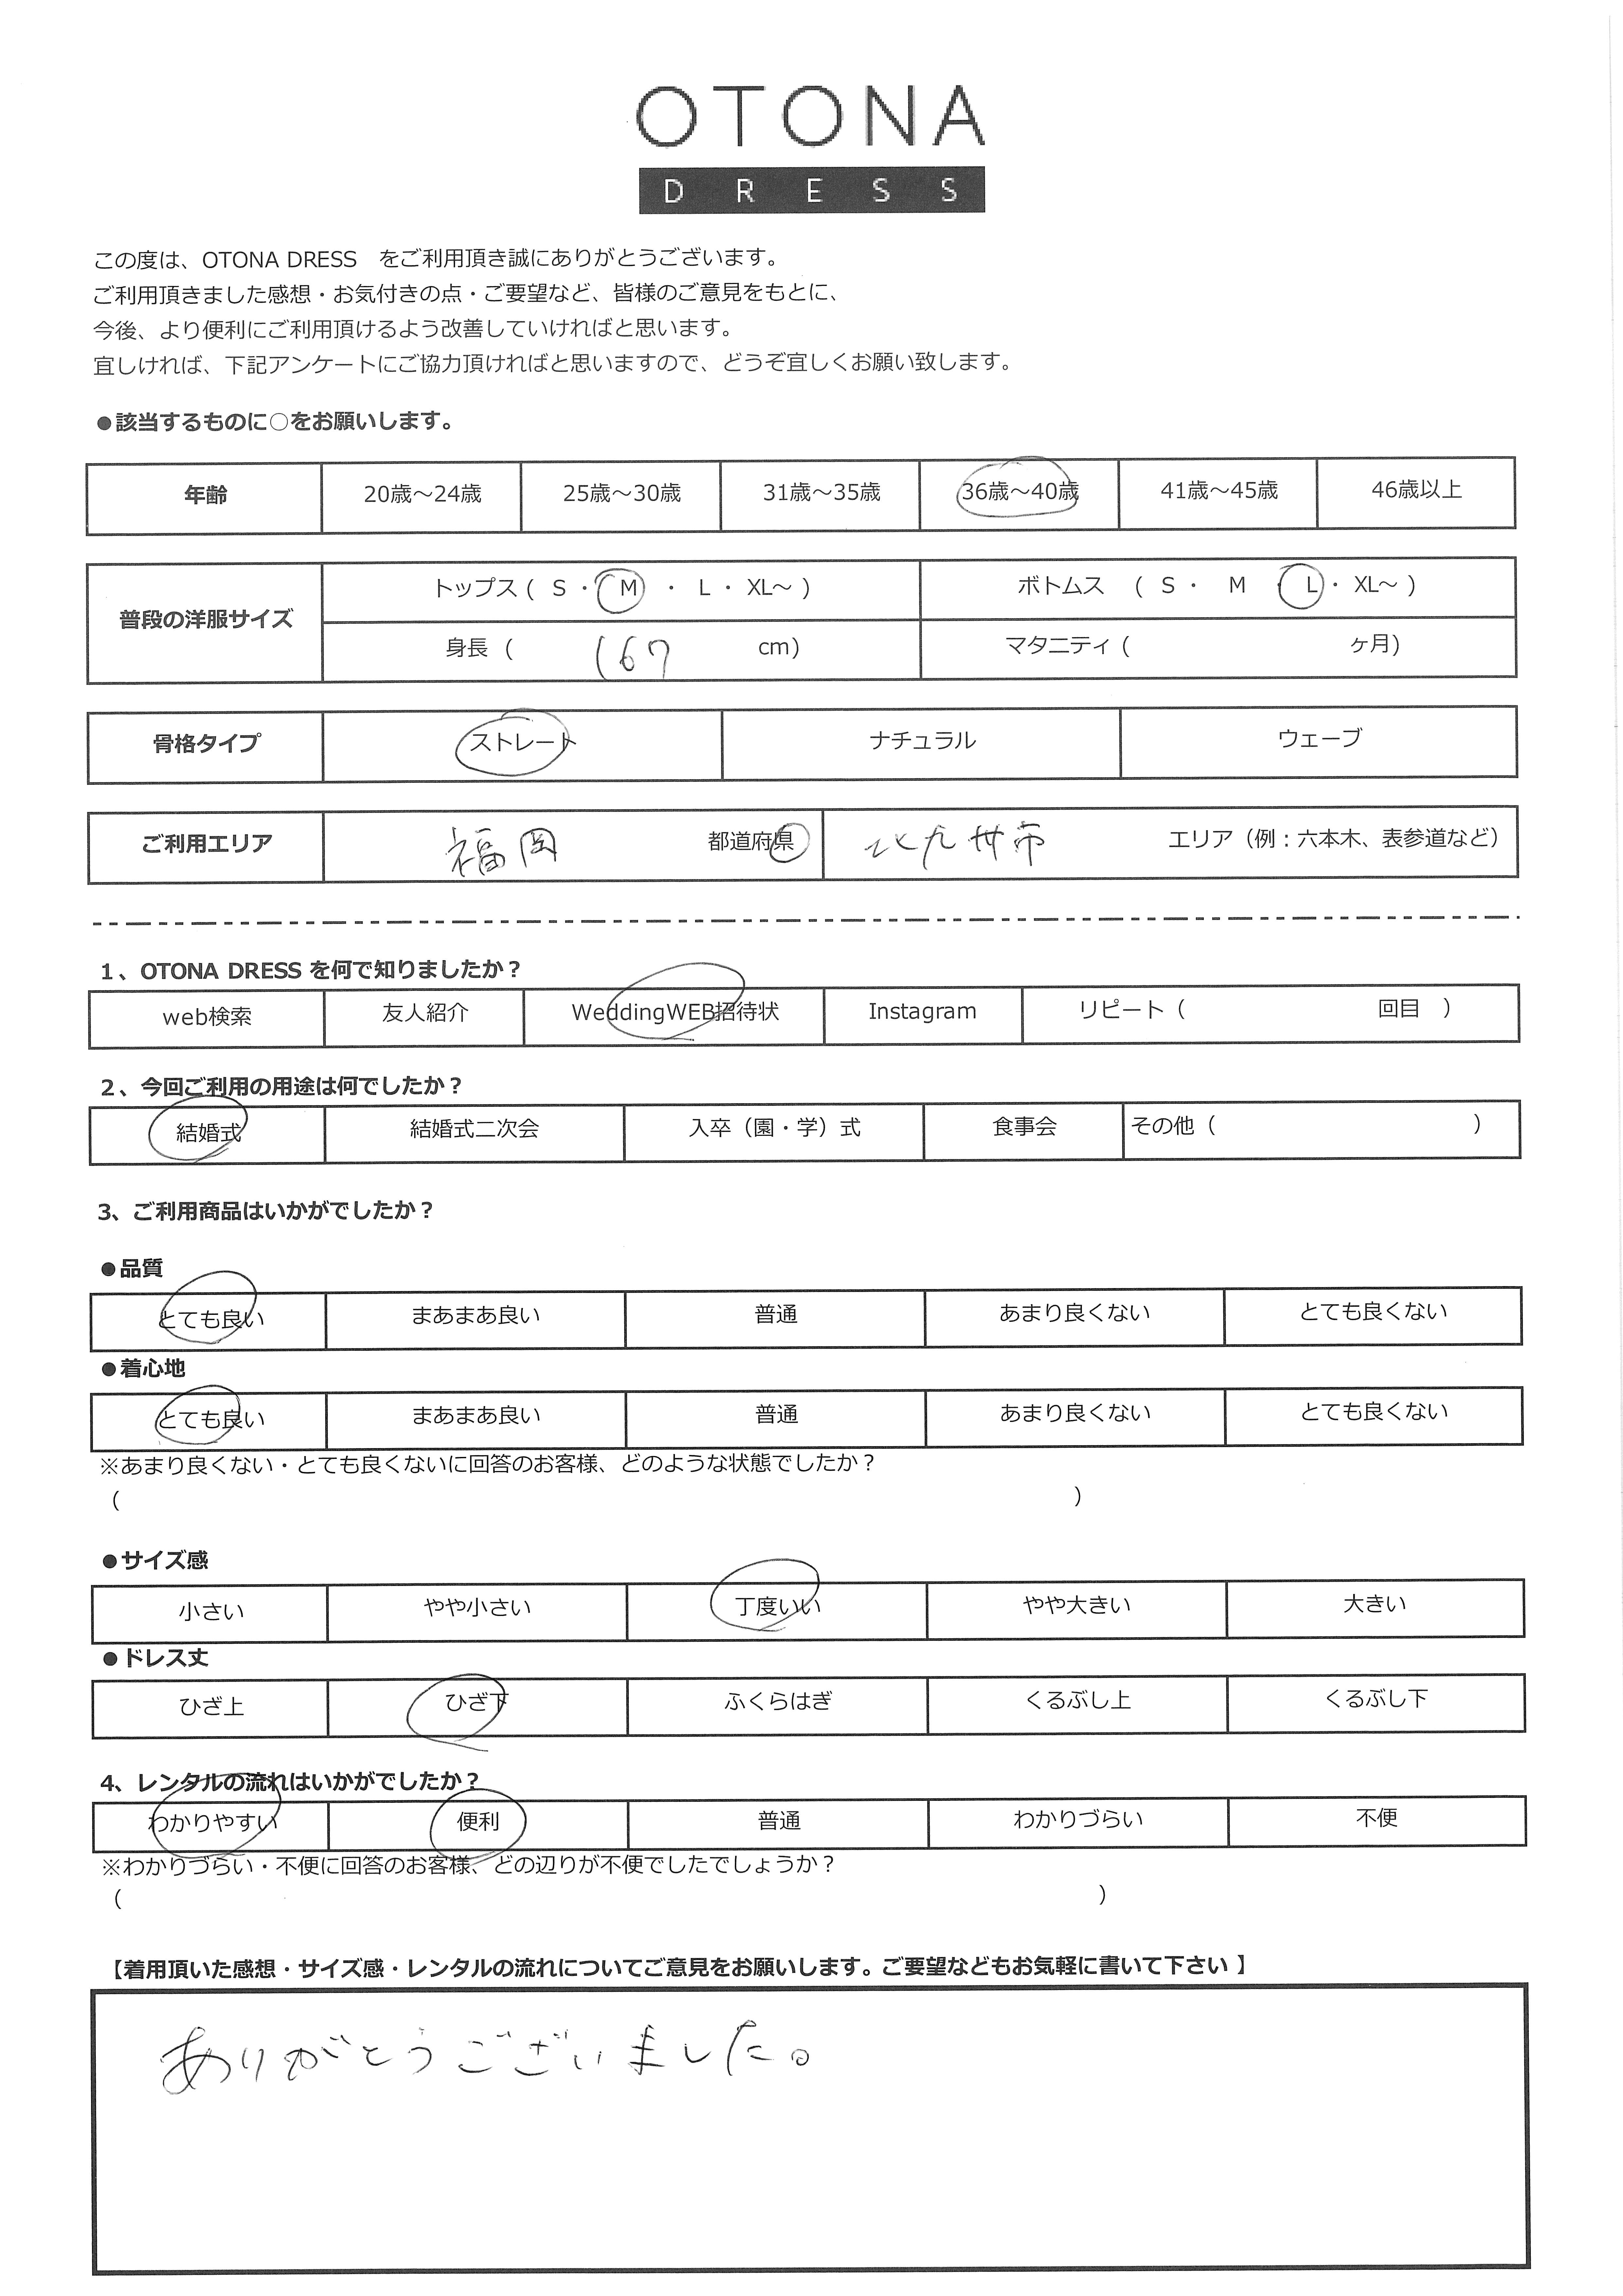 OTONA
DRESS
この度は、OTONA DRESS　をご利用頂き誠にありがとうございます。
ご利用頂きました感想・お気付きの点・ご要望など、皆様のご意見をもとに、
今後、より便利にご利用頂けるよう改善していければと思います。
宜しければ、下記アンケートにご協力頂ければと思いますので、どうぞ宜しくお願い致します。
●該当するものに○をお願いします。
年齢 20歳～24歳 25歳～30歳 31歳～35歳 36歳～40歳 41歳～45歳 46歳以上
普段の洋服サイズ
トップス ( S ・ M ・ L ・ XL～ ) ボトムス ( S ・ M ・ L ・ XL～ )
身長 ( 167 cm) マタニティ ( ヶ月)
骨格タイプ ストレート ナチュラル ウェーブ
ご利用エリア 福岡 都道府県 北九州市 エリア（例：六本木、表参道など）
1、OTONA DRESS を何で知りましたか？
web検索 友人紹介 WeddingWEB招待状 Instagram リピート（ 回目 ）
2、今回ご利用の用途は何でしたか？
結婚式 結婚式二次会 入卒（園・学）式 食事会 その他（ ）
3、ご利用商品はいかがでしたか？
●品質
とても良い まあまあ良い 普通 あまり良くない とても良くない
●着心地
とても良い まあまあ良い 普通 あまり良くない とても良くない
※あまり良くない・とても良くないに回答のお客様、どのような状態でしたか？
（ ）
●サイズ感
小さい やや小さい 丁度いい やや大きい 大きい
●ドレス丈
ひざ上 ひざ下 ふくらはぎ くるぶし上 くるぶし下
4、レンタルの流れはいかがでしたか？
わかりやすい 便利 普通 わかりづらい 不便
※わかりづらい・不便に回答のお客様、どの辺りが不便でしたでしょうか？
（ ）
【着用頂いた感想・サイズ感・レンタルの流れについてご意見をお願いします。ご要望などもお気軽に書いて下さい 】
ありがとうございました。